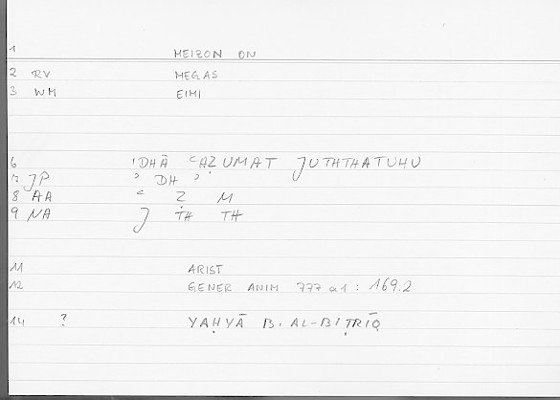 1 MEIZON ON
2 RV MEGAS
3 WM EIMI
6 'DHĀ ʿAẒUMAT JUTHTHATUHU
7 JP ʾ DH ʾ
8 AA ʿ Ẓ M
9 NA J TH TH
11 ARIST
12 GENER ANIM 777 a1 : 169.2
14 ? YAḤYĀ B. AL-BIṬRĪQ